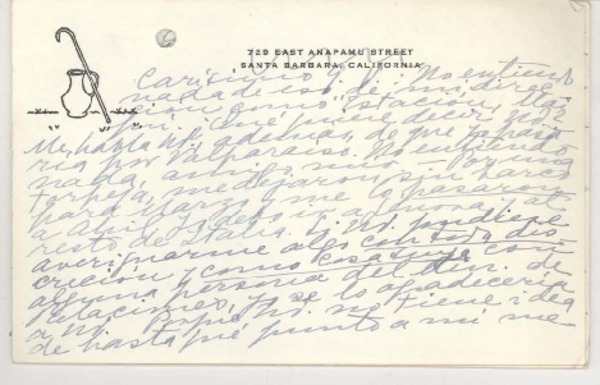 729 EAST ANAPAMU STREET
SANTA BARBARA, CALIFORNIA
Carísimo No entiendo
nada de eso de mi direc-
ción como "Estación,
¿Qué quiere decir, no?
Me habla Ud., además, de que ya pasa-
ría por Valparaíso. No entiendo
nada, amigo mío. — Por una
torpeza, me dejaron sin barco
para Marzo y me lo pasaron
a Abril y debo ir a Génova, al
resto de Italia. Si Ud. pudiese
averiguarme algo con toda dis-
creción y como cosa suya con
alguna persona del Min. de
Relaciones, yo se lo agradecería
a Ud. Porque Ud. no tiene idea
de hasta qué punto a mí me